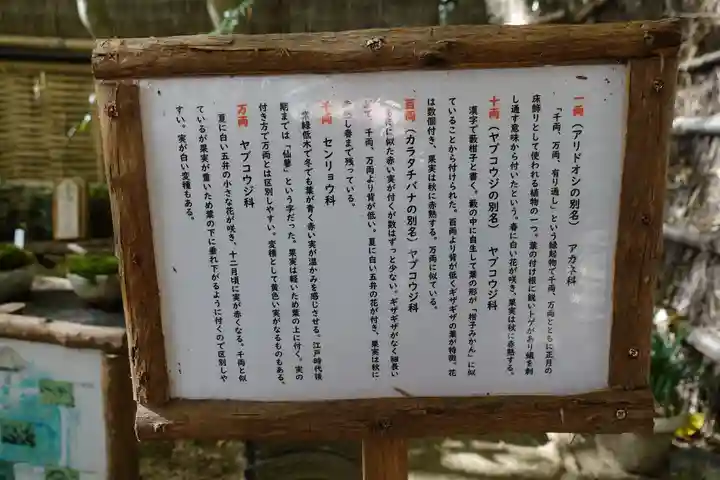 一両（アリドオシの別名）　アカネ科
「千両、万両、有り通し」という縁起物で千両、万両とともに正月の
床飾りとして使われる植物の一つ。葉の付け根に鋭いトゲがあり蟻を刺
し通す意味から付いたという。春に白い花が咲き、果実は秋に赤熟する。
十両（ヤブコウジの別名）　ヤブコウジ科
漢字で藪柑子と書く。藪の中に自生して葉の形が、「柑子みかん」に似
ていることから付けられた。百両より背が低くギザギザの葉が特徴。花
は数個付き、果実は秋に赤熟する。万両に似ている。
百両（カラタチバナの別名）ヤブコウジ科
に似た赤い実が付くが数はずっと少ない。ギザギザがなく細長い
千両、万両より背が低い。夏に白い五弁の花が付き、果実は秋に
し春まで残っている。
千両　センリョウ科
緑低木で冬でも葉が青く赤い実が温かみを感じさせる。江戸時代後
期までは「仙蓼」という字だった。果実は軽いため葉の上に付く。実の
付き方で万両とは区別しやすい。変種として黄色い実がなるものもある。
万両　ヤブコウジ科
夏に白い五弁の小さな花が咲き、十二月頃に実が赤くなる。千両と似
ているが果実が重いため葉の下に垂れ下がるように付くので区別しや
すい。実が白い変種もある。